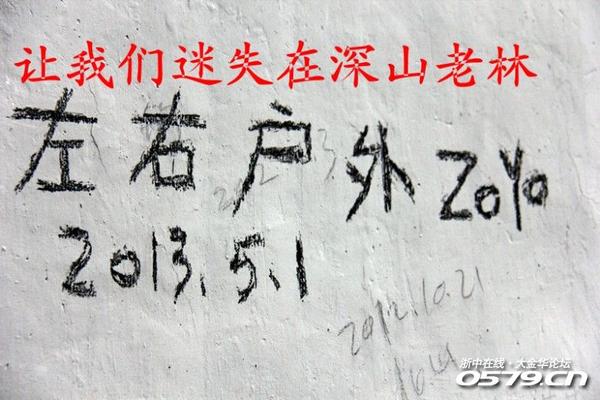 让我们迷失在深山老林
左右户外 ZOYO
2013.5.1
2012.10.21
浙中在线·大金华论坛
0579.CN